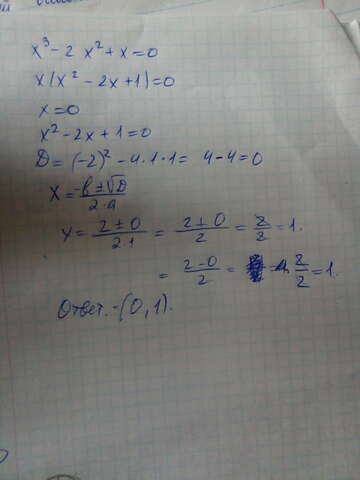 x³ - 2 x² + x = 0
x(x² - 2x + 1) = 0
x = 0
x² - 2x + 1 = 0
D = (-2)² - 4·1·1 = 4 - 4 = 0
X = -b ± √D / 2·a
Y = 2 ± 0 / 2·1 = 2 ± 0 / 2 = 2/2 = 1.
= 2 - 0 / 2 = 2/2 = 1.
Ответ. - (0, 1).